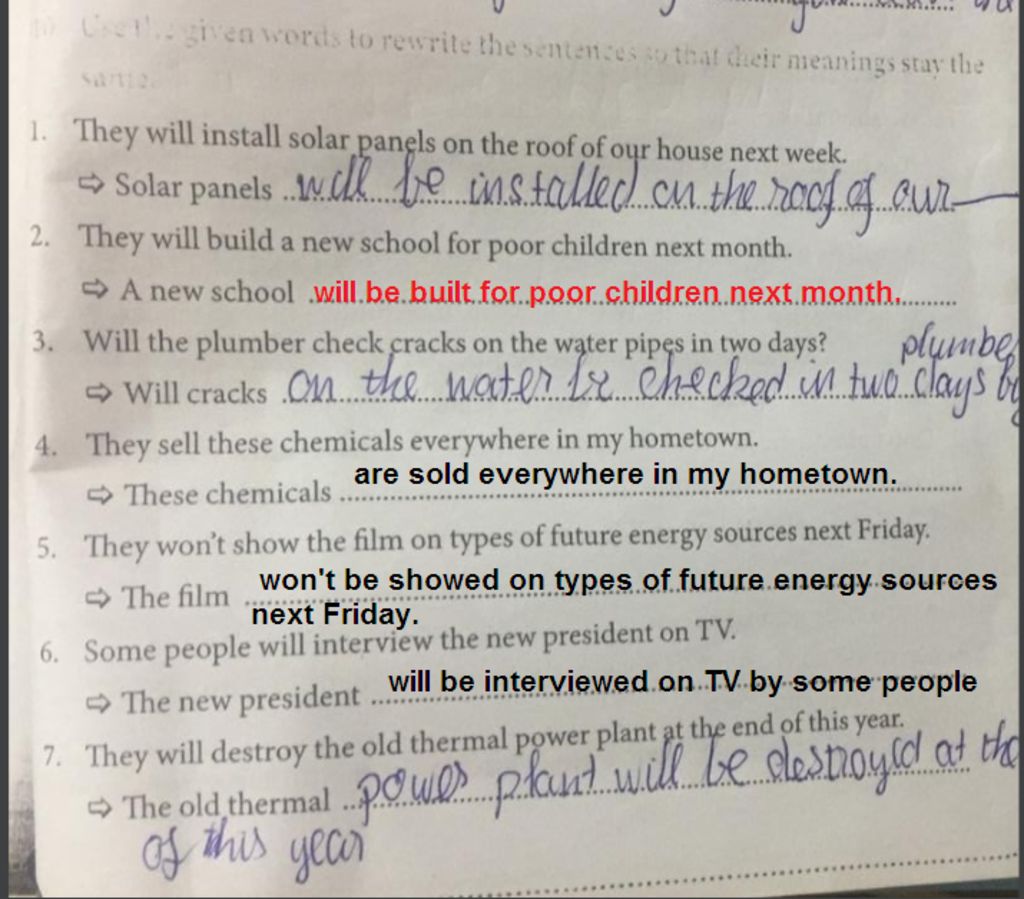 10. Use the given words to rewrite the sentences so that their meanings stay the
same.
1. They will install solar panels on the roof of our house next week.
⇨ Solar panels will be installed on the roof of our
2. They will build a new school for poor children next month.
⇨ A new school will be built for poor children next month.
3. Will the plumber check cracks on the water pipes in two days?
plumber
⇨ Will cracks on the water be checked in two days by
4. They sell these chemicals everywhere in my hometown.
⇨ These chemicals are sold everywhere in my hometown.
5. They won't show the film on types of future energy sources next Friday.
⇨ The film won't be showed on types of future energy sources
next Friday.
6. Some people will interview the new president on TV.
⇨ The new president will be interviewed on TV by some people
7. They will destroy the old thermal power plant at the end of this year.
⇨ The old thermal power plant will be destroyed at the
of this year